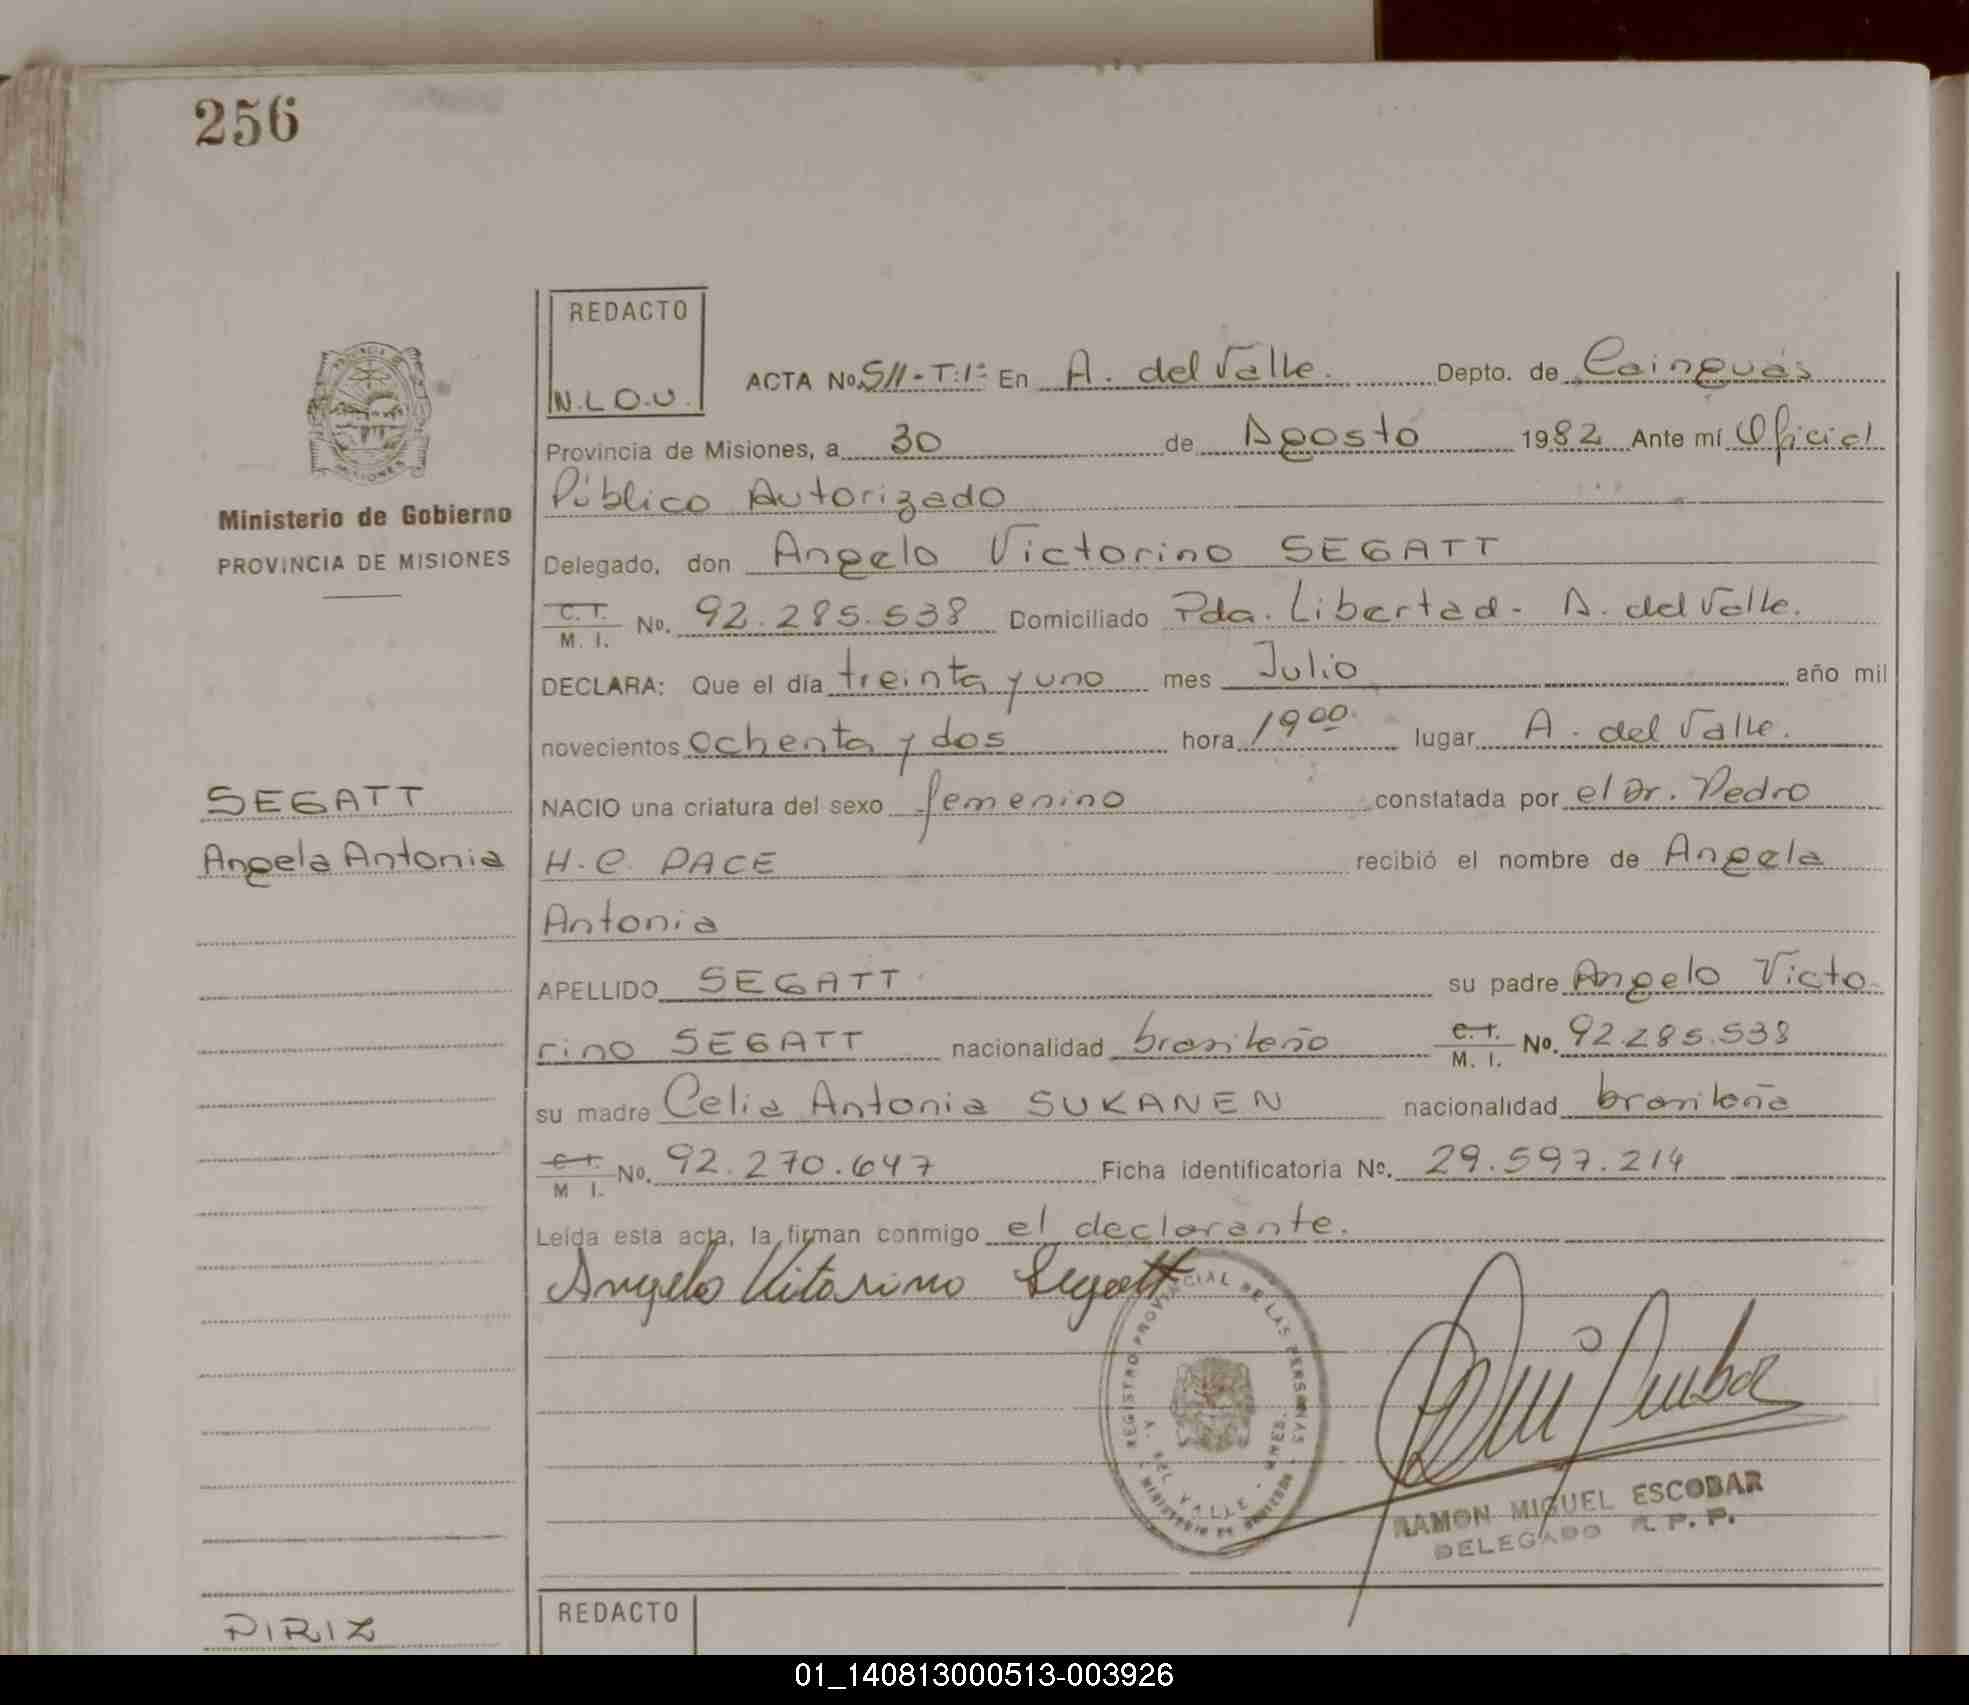 256
REDACTO
N.L.O.U.
ACTA No. 511-T:1º En A. del Valle. Depto. de Cainguás
Provincia de Misiones, a 30 de Agosto 1982 Ante mí Oficial
Público Autorizado
Ministerio de Gobierno
PROVINCIA DE MISIONES
Delegado, don Angelo Victorino SEGATT
C. I. M. I. No. 92.285.538 Domiciliado Pda. Libertad - A. del Valle.
DECLARA: Que el día treinta y uno mes Julio año mil
novecientos ochenta y dos hora 19 00. lugar A. del Valle.
SEGATT
Angela Antonia
NACIO una criatura del sexo femenino constatada por el Dr. Pedro
H. C. PACE recibió el nombre de Angela
Antonia
APELLIDO SEGATT su padre Angelo Victo
rino SEGATT nacionalidad brasileño C. I. M. I. No. 92.285.538
su madre Celia Antonia SUKANEN nacionalidad brasileña
C. I. M I. No. 92.270.647 Ficha identificatoria No. 29.597.214
Leída esta acta, la firman conmigo el declarante.
Angelo Vitorino Segatt
REGISTRO PROVINCIAL DE LAS PERSONAS
A. DEL VALLE - MNES.
MINISTERIO DE GOBIERNO
RAMON MIGUEL ESCOBAR
DELEGADO R. P. P.
REDACTO
PIRIZ
01_140813000513-003926